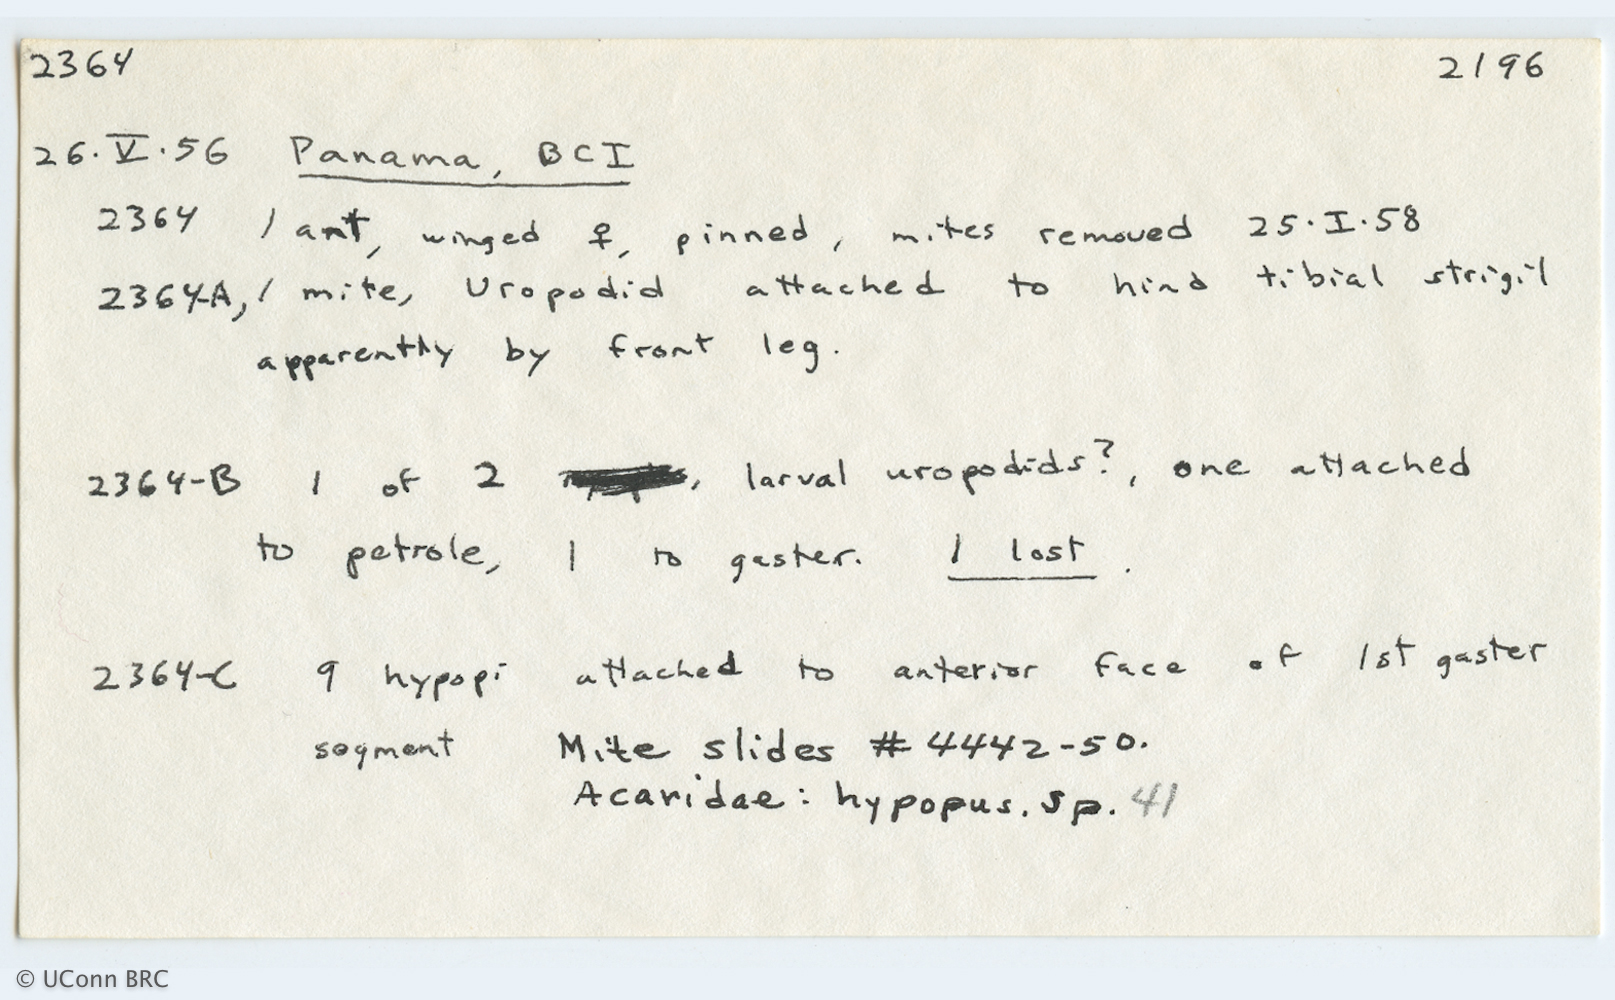 2364 2196
26.V.56 Panama, BCI
2364 1 ant, winged ♀, pinned, mites removed 25.I.58
2364-A, 1 mite, Uropodid attached to hind tibial strigil
apparently by front leg.
2364-B 1 of 2 , larval uropodids?, one attached
to petrole, 1 to gaster. 1 lost.
2364-C 9 hypopi attached to anterior face of 1st gaster
segment Mite slides # 4442-50.
Acaridae: hypopus. sp. 41
© UConn BRC